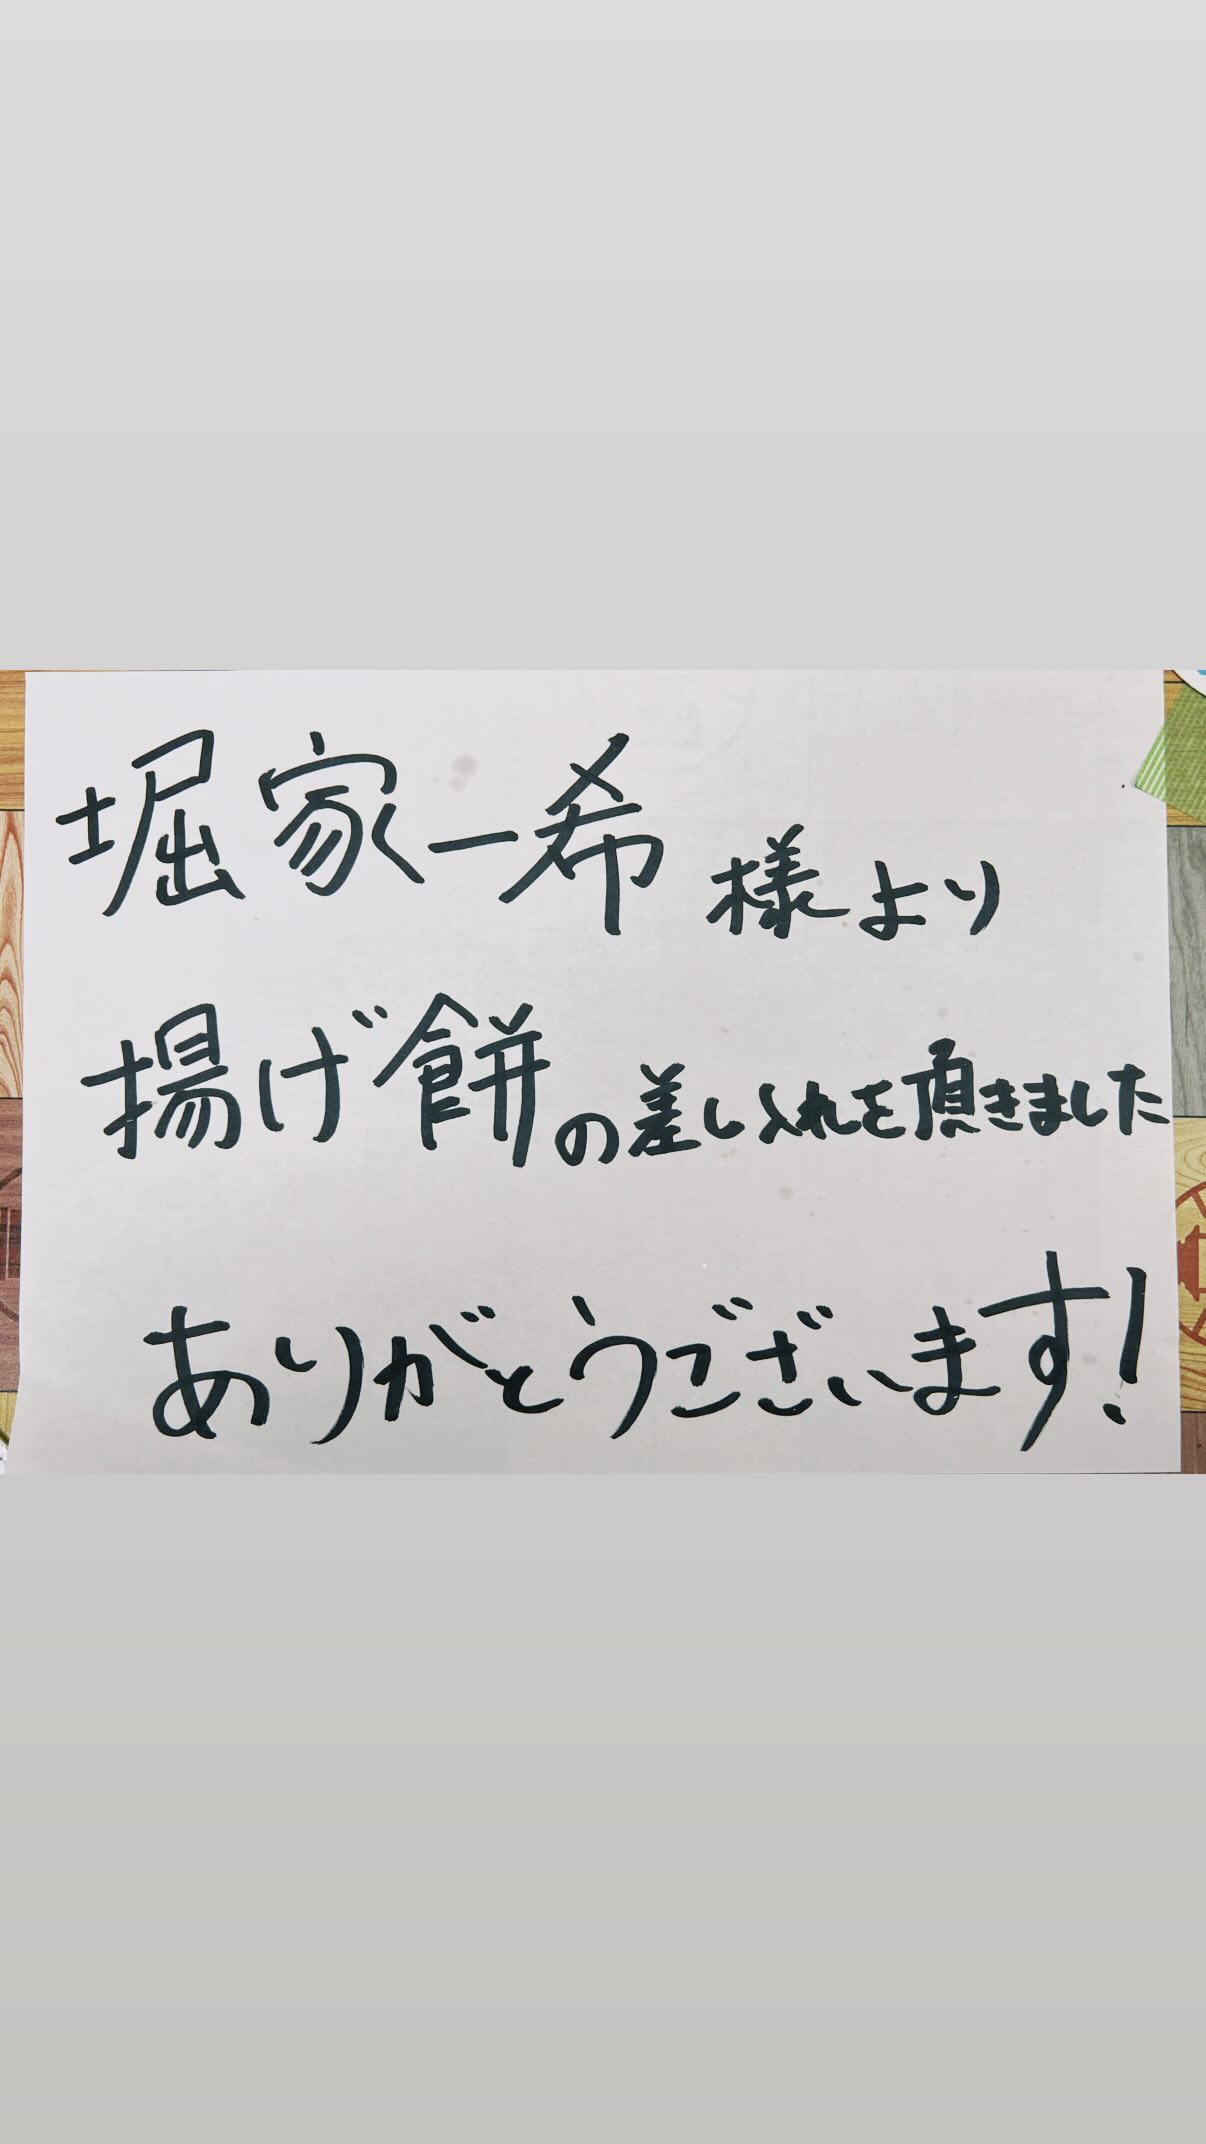 堀家一希様より
揚げ餅の差し入れを頂きました
ありがとうございます!